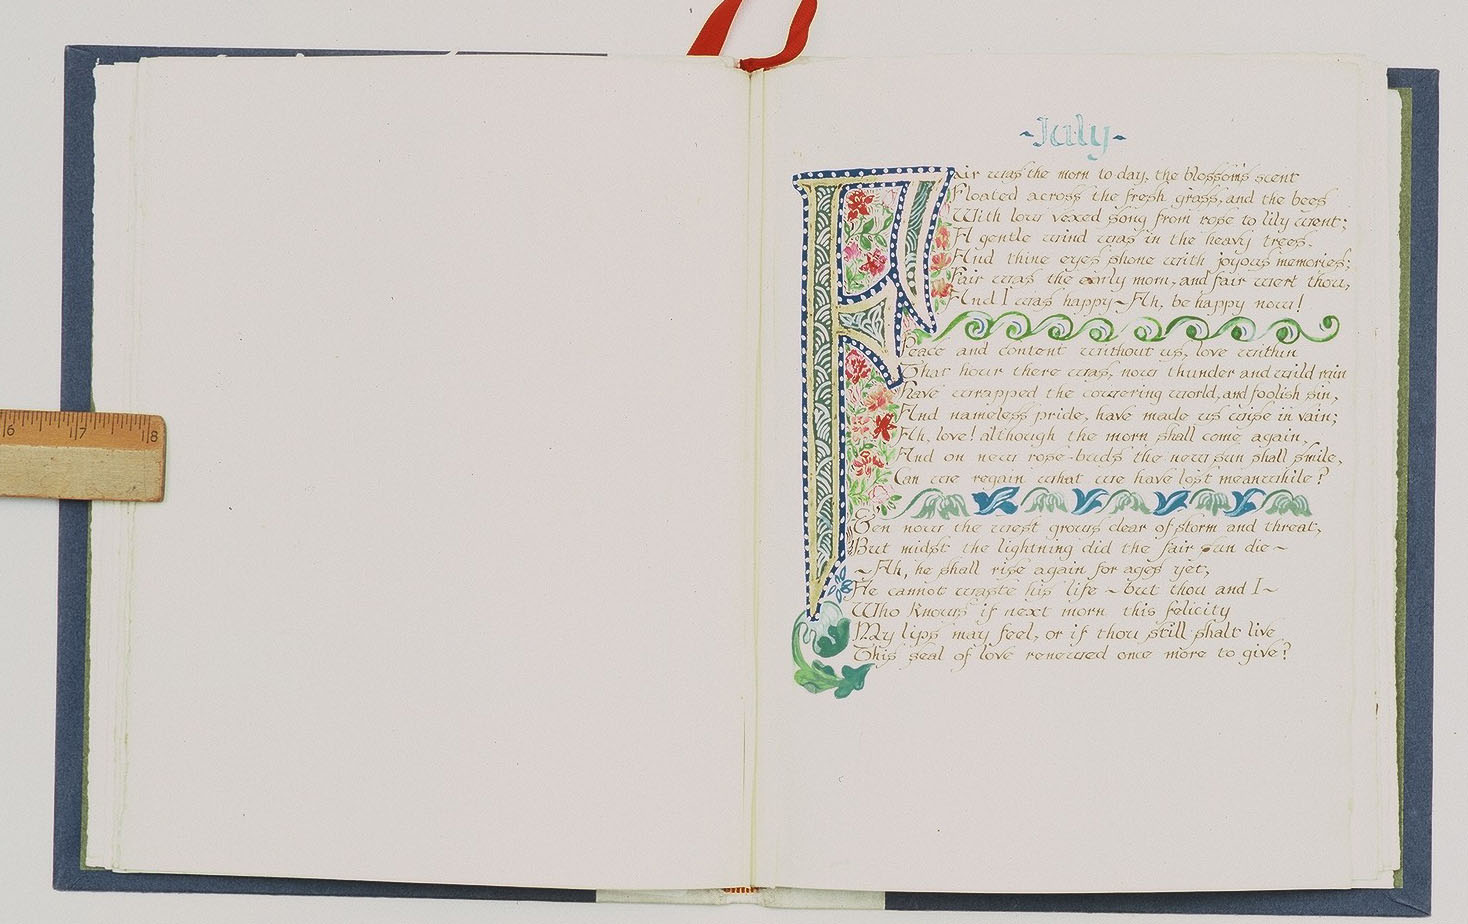 6 7 8
~July~
Fair was the morn to day, the blossom's scent
Floated across the fresh grass, and the bees
With low vexed song from rose to lily went;
A gentle wind was in the heavy trees.
And thine eyes shone with joyous memories;
Fair was the early morn, and fair wert thou,
And I was happy~ Ah, be happy now!
Peace and content without us, love within
That hour there was, now thunder and wild rain
Have wrapped the cowering world, and foolish sin,
And nameless pride, have made us wise in vain;
Ah, love! although the morn shall come again,
And on new rose-buds the new sun shall smile,
Can we regain what we have lost meanwhile?
E'en now the west grows clear of storm and threat,
But midst the lightning did the fair sun die~
~Ah, he shall rise again for ages yet,
He cannot waste his life ~but thou and I~
Who knows if next morn this felicity
My lips may feel, or if thou still shalt live
This seal of love renewed once more to give?